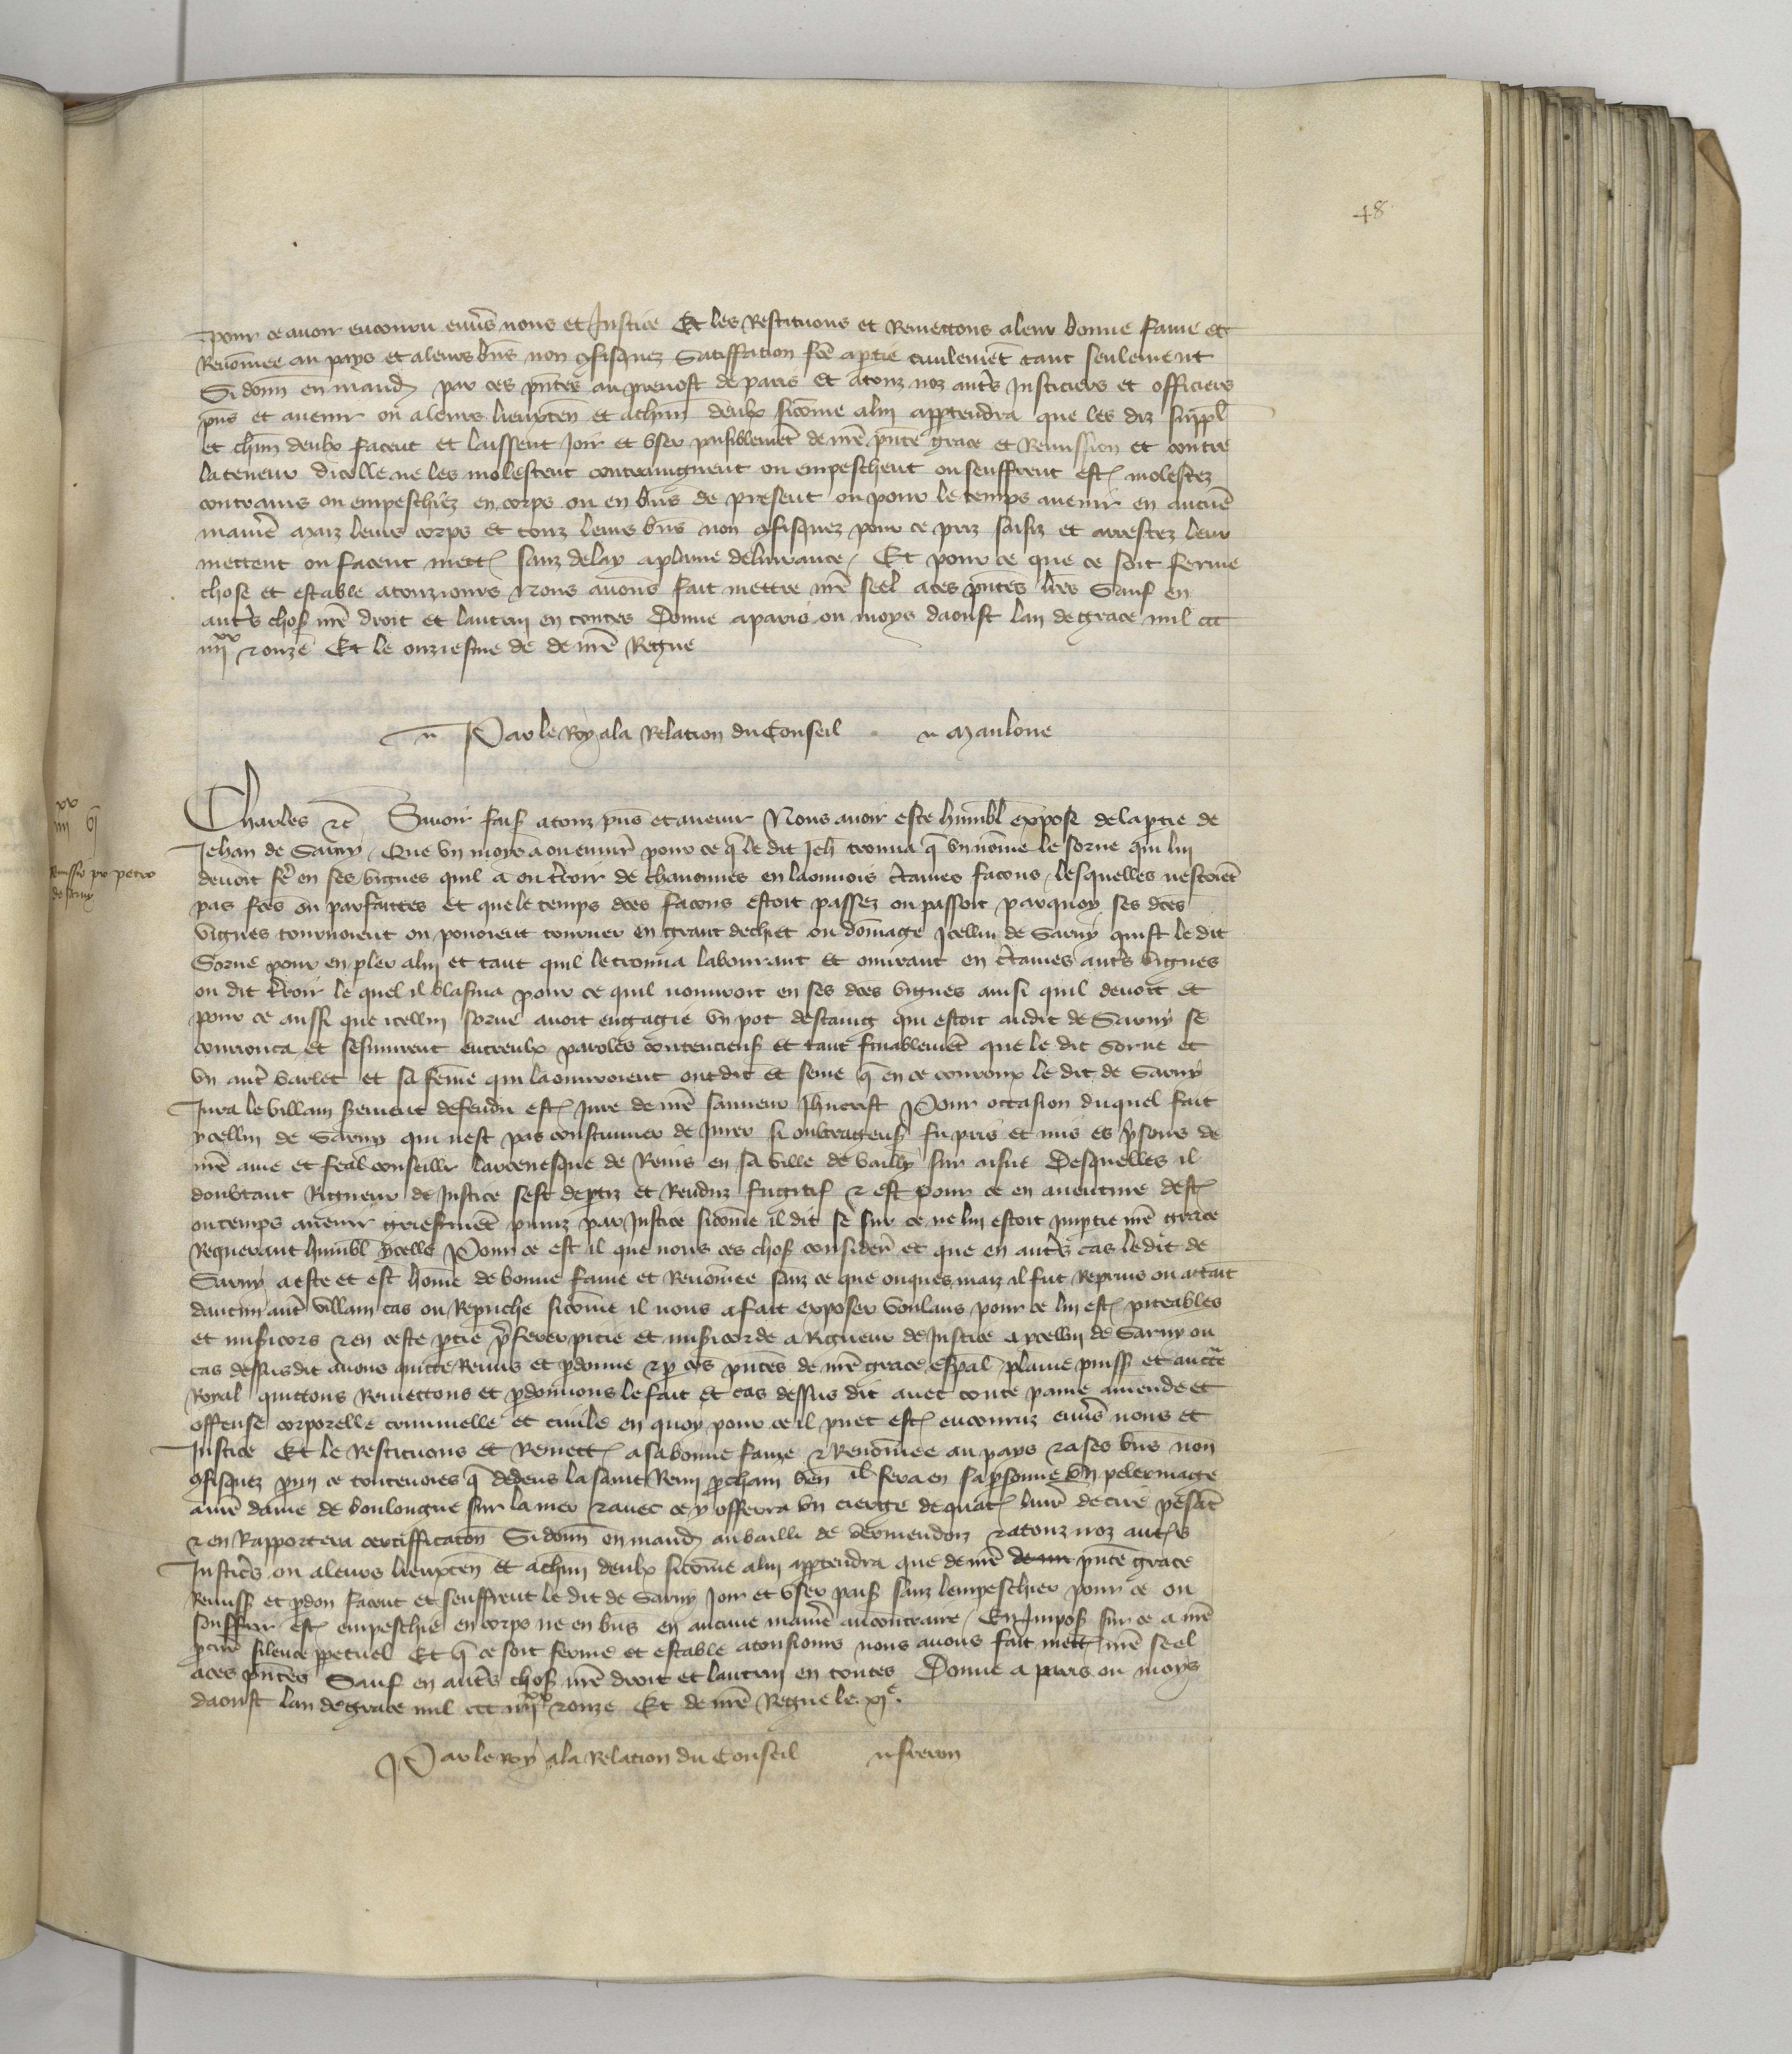 48
pour ce avoir encouru envs nous et Justice Et les Restituons et Remettons a leur bonne fame et
Renomee au pays et a leurs bns non 9fisquez Satiffation fce a ptie civilemet tant seulement
Si donn en mand par ces pntes au prevost de paris et a touz noz auts Justiciers et officiers
pns et avenir ou a leurs lieuxten et a chun deulx sicome a lui appartendra que les diz suppl
et chun deulx facent et laissent Joir et user paisiblemet de nre pnte grace et Remission et contre
la teneur dicelle ne les molestent contraingnent ou empeschent ou seuffrent est molestez
contrains ou empeschiez en corps ou en bns de present ou pour le temps avenir en aucune
maniē maiz leurs corps et touz leurs bns non 9fisquez pour ce priz saisiz et arrestez leur
mettent ou facent mett sanz delay a plaine delivrance / Et pour ce que ce soit ferme
chose et estable a touzjours Nous avons fait mettre nre seel a ces pntes lres Sauf en
auts chos nre droit et lautrui en toutes Donne a paris ou moys daoust lan de grace mil ccc
iiiixx et onze Et le onziesme de de nre Regne
Par le Roy a la Relation du Conseil Maulone
iiiixx vj
Remissio pro petro
de sarny
Charles etc Savoir fais a touz pns et avenir Nous avoir este humbl expose de la ptie de
Jehan de Sarny / Que un moys a ou environ pour ce q le dit Jeh trouva q un nome le sorne qui lui
devoit fe en ses vignes quil a ou troir de chavonnes en laonnois ctaines facons / lesquelles nestoiet
pas fces ou parfaittes et que le temps dces facons estoit passez ou passoit parquoy ses dces
vignes tournoient ou povoient tourner en grant dechiet ou domage Icellui de Sarny quist le dit
Sorne pour en pler a lui et tant quil le trouva labourant et ouvrant en ctaines auts vignes
ou dit troir le quel il blasma pour ce quil nouvroit en ses dces vignes ainsi quil devoit et
pour ce aussi que icellui sorne avoit engagie un pot destaing qui estoit audit de Sarny se
courrouca et sesmurent entreulx paroles contencieus et tant finablement que le dit Sorne et
un aut varlet et sa feme qui la ouvroient ont dit et seme q en ce courroux le dit de Sarny
Jura le villain serement defendu est Jure de nre sauveur Jhucrist Pour occasion duquel fait
ycellui de Sarny qui nest pas coustumier de Jurer si oultrageus fu pris et mis es psons de
nre ame et feal conseiller larcevesque de Reins en sa ville de vailly sur aisne Desquelles il
doubtant Rigueur de Justice sest deptiz et Renduz fugitif et est pour ce en aventure dest
ou temps avenir griefment puniz par Justice sicome il dit se sur ce ne lui estoit Impartie nre grace
Requerant humbl ycelle Pour ce est il que nous ces chos consider et que en auts cas ledit de
Sarny a este et est home de bonne fame et Renomee sanz ce que onques maiz il fut Reprins ou attait
daucun aut villain cas ou Reprouche sicome il nous a fait exposer voulans pour ce lui est piteables
et misicors et en ceste ptie pferer pitie et misicorde a Rigueur de Justice a ycellui de Sarny ou
cas dessusdit avons quitte Remis et pdonne et p ces pntes de nre grace espal plaine puiss et aucte
Royal quittons Remettons et pdonnons le fait et cas dessus dit avec toute paine amende et
offense corporelle criminelle et civile en quoy pour ce il puet est encouruz envs nous et
Justice Et le Restituons et Remett a sa bonne fame et Renomee au pays et a ses bns non
9fisquez pmi ce toutevoies q dedens la saint Remi pchain ven il fera en sa psonne un pelerinage
a nre dame de boulongne sur la mer et avec ce y offerra un cierge de quat livr de cire pesat
et en Rapportera certifficaton Si donn en mand au bailli de vermendoiz et a touz noz auts
Justics ou a leurs lieuxten et a chun deulx sicome a lui appartendra que de nre de nr pnte grace
Remiss et pdon facent et seuffrent le dit de Sarny Joir et user pais sanz lempeschier pour ce ou
souffrir est empeschie en corps ne en bns en aucune manie au contraire / En Impos sur ce a nre
pcure silence ppetuel Et q ce soit ferme et estable a tousjours nous avons fait mett nre seel
a ces pntes Sauf en auts chos nre droit et lautrui en toutes Donne a paris ou moys
daoust lan de grace mil ccc iiiixx et onze Et de nre Regne le xje.
Par le Roy a la Relation du Conseil freron